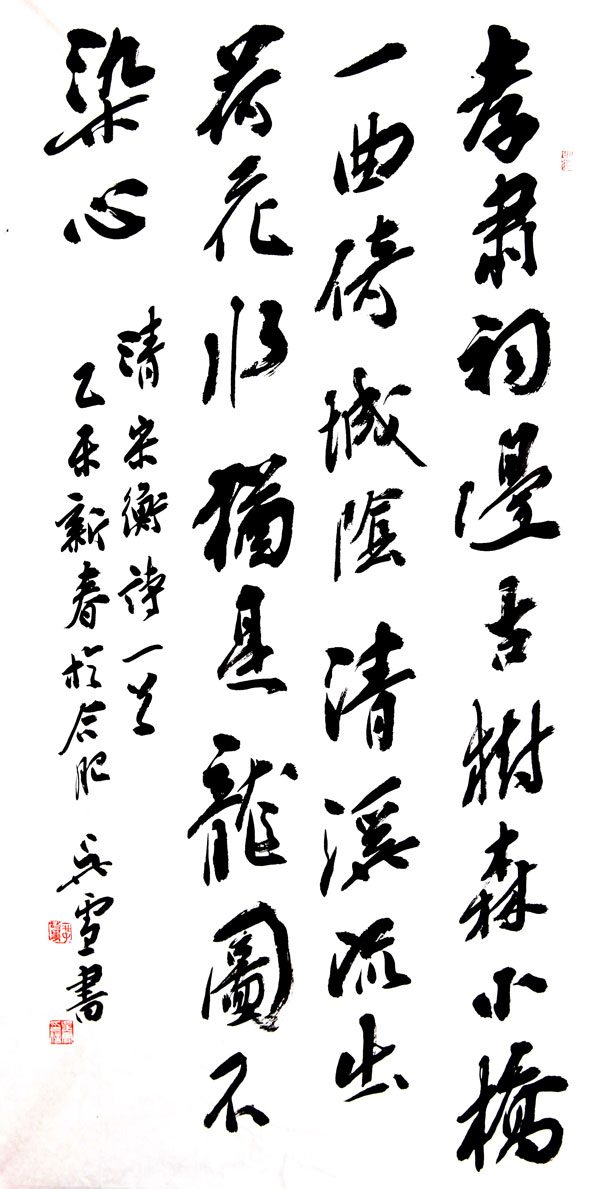 孝肅祠邊古樹森小橋
一曲倚城陰清溪流出
荷花水猶是龍圖不
染心
清宋衡詩一首
乙未新春於合肥
吳雪書